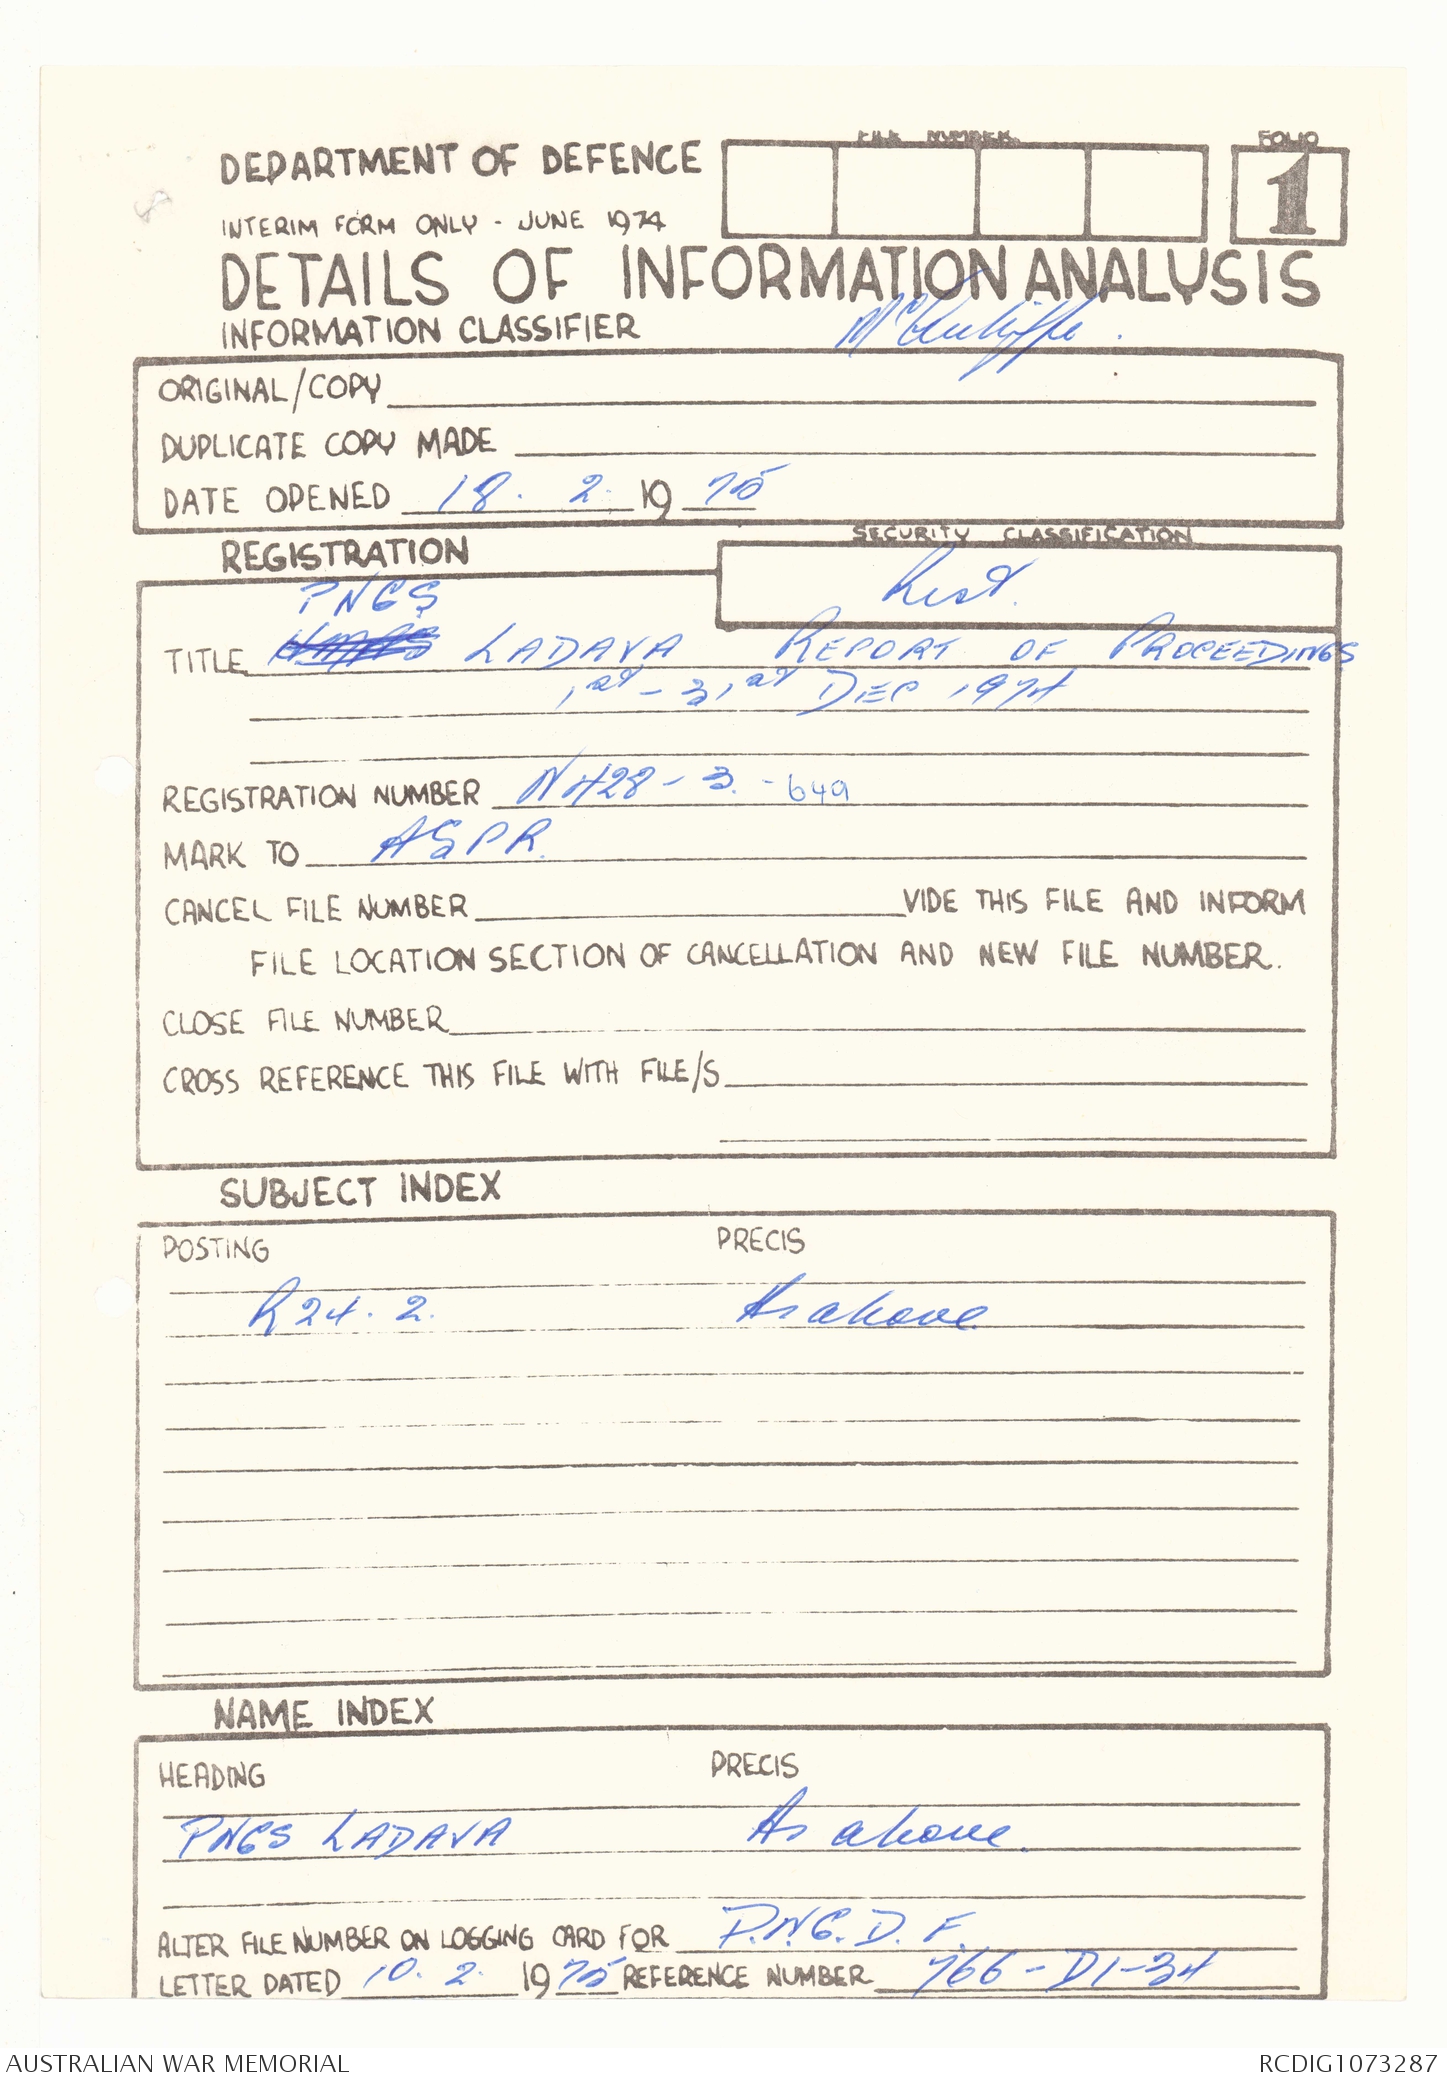 FILE NUMBER
FOLIO
DEPARTMENT OF DEFENCE
1
INTERIM FORM ONLY - JUNE 1974
DETAILS OF INFORMATION ANALYSIS
INFORMATION CLASSIFIER McAuliffe.
ORIGINAL/COPY
DUPLICATE COPY MADE
DATE OPENED 18. 2. 1975
SECURITY CLASSIFICATION
REGISTRATION
Rest.
PNGS
TITLE HMAS LADAVA REPORT OF PROCEEDINGS
1st - 31st DEC 1974
REGISTRATION NUMBER N428 - 3. - 649
MARK TO ASPR.
CANCEL FILE NUMBER VIDE THIS FILE AND INFORM
FILE LOCATION SECTION OF CANCELLATION AND NEW FILE NUMBER.
CLOSE FILE NUMBER
CROSS REFERENCE THIS FILE WITH FILE/S
SUBJECT INDEX
POSTING PRECIS
R24. 2. As above
NAME INDEX
HEADING PRECIS
PNGS LADAVA As above.
ALTER FILE NUMBER ON LOGGING CARD FOR P.N.G.D.F.
LETTER DATED 10. 2. 1975 REFERENCE NUMBER 766-D1-34
AUSTRALIAN WAR MEMORIAL
RCDIG1073287